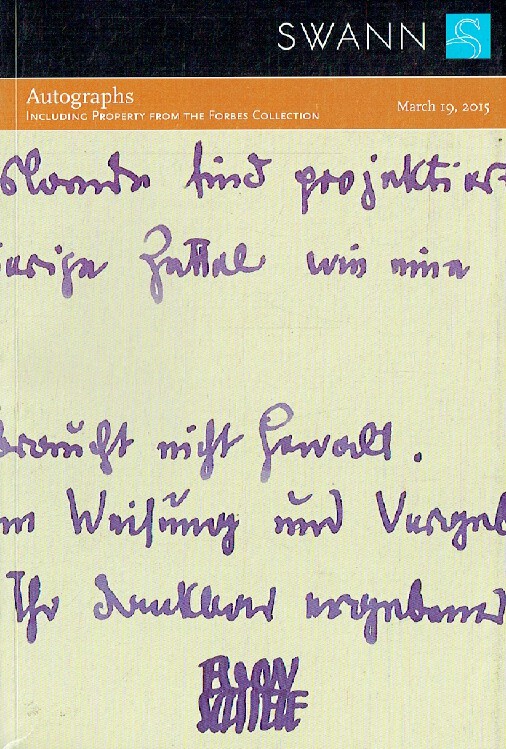 SWANN
Autographs
INCLUDING PROPERTY FROM THE FORBES COLLECTION
March 19, 2015
slande sind projektier-
jerige Zettel wie eine
braucht nicht Gewalt.
Weisung und Vergeb
Ihr dankbar ergebener
EGON
SCHIELE